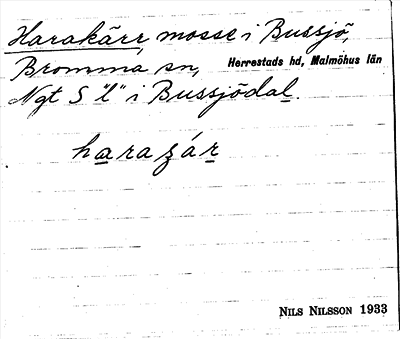 Harakärr, mosse i Bussjö,
Bromma sn, Herrestads hd, Malmöhus län
Ngt S "l" i Bussjödal.
harazár
NILS NILSSON 1933